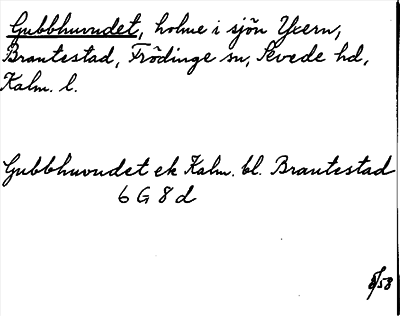 Gubbhuvudet, holme i sjön Yxern,
Brantestad, Frödinge sn, Sevede hd,
Kalm. l.
Gubbhuvudet ek Kalm. bl. Brantestad
6 G 8 d
8/58